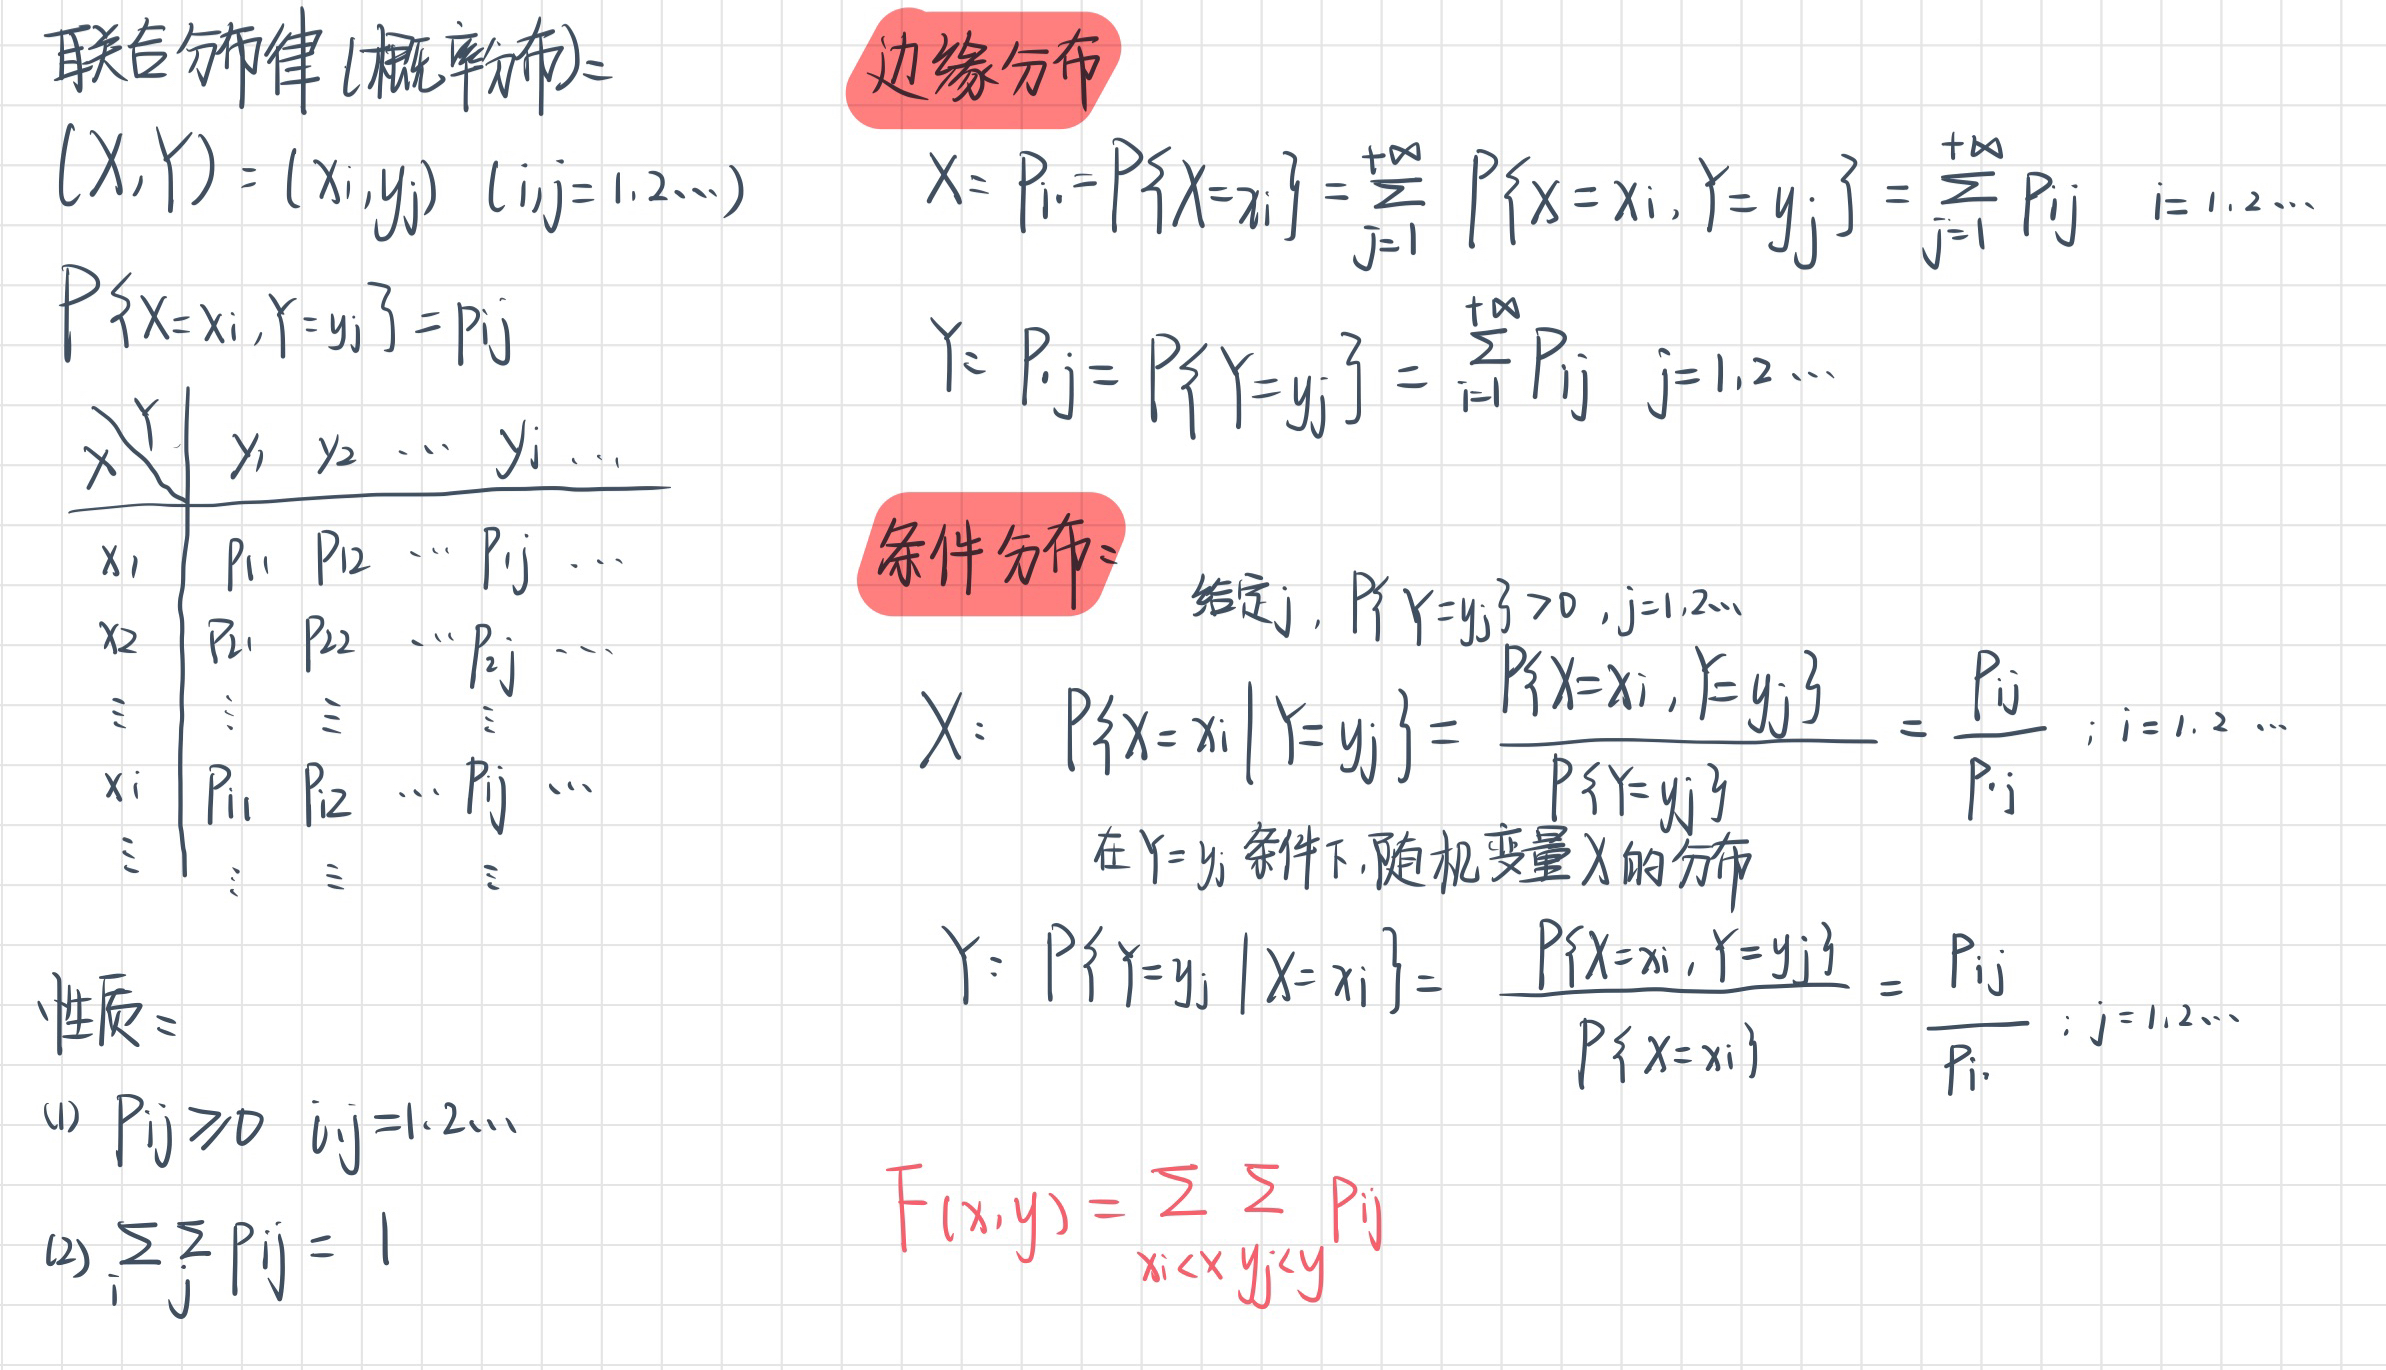 联合分布律(概率分布):
(X,Y) = (xi,yj) (i,j=1,2…)
P{X=xi,Y=yj}=pij
X Y y1 y2 … yj …
x1 P11 P12 … P1j …
x2 P21 P22 … P2j …
⋮ ⋮ ⋮ ⋮
xi Pi1 Pi2 … Pij …
⋮ ⋮ ⋮ ⋮
性质:
(1) Pij⩾0 i,j=1,2…
(2) ∑i ∑j Pij = 1
边缘分布
X: Pi·=P{X=xi}=∑_{j=1}^{+∞} P{X=xi,Y=yj}=∑_{j=1}^{+∞} Pij i=1,2…
Y: P·j=P{Y=yj}=∑_{i=1}^{+∞} Pij j=1,2…
条件分布:
给定j,P{Y=yj}>0,j=1,2…
X: P{X=xi|Y=yj}=P{X=xi,Y=yj}/P{Y=yj}=Pij/P·j ; i=1,2…
在Y=yj条件下,随机变量X的分布
Y: P{Y=yj|X=xi}=P{X=xi,Y=yj}/P{X=xi}=Pij/Pi· ; j=1,2…
F(x,y)=∑_{xi<x} ∑_{yj<y} Pij